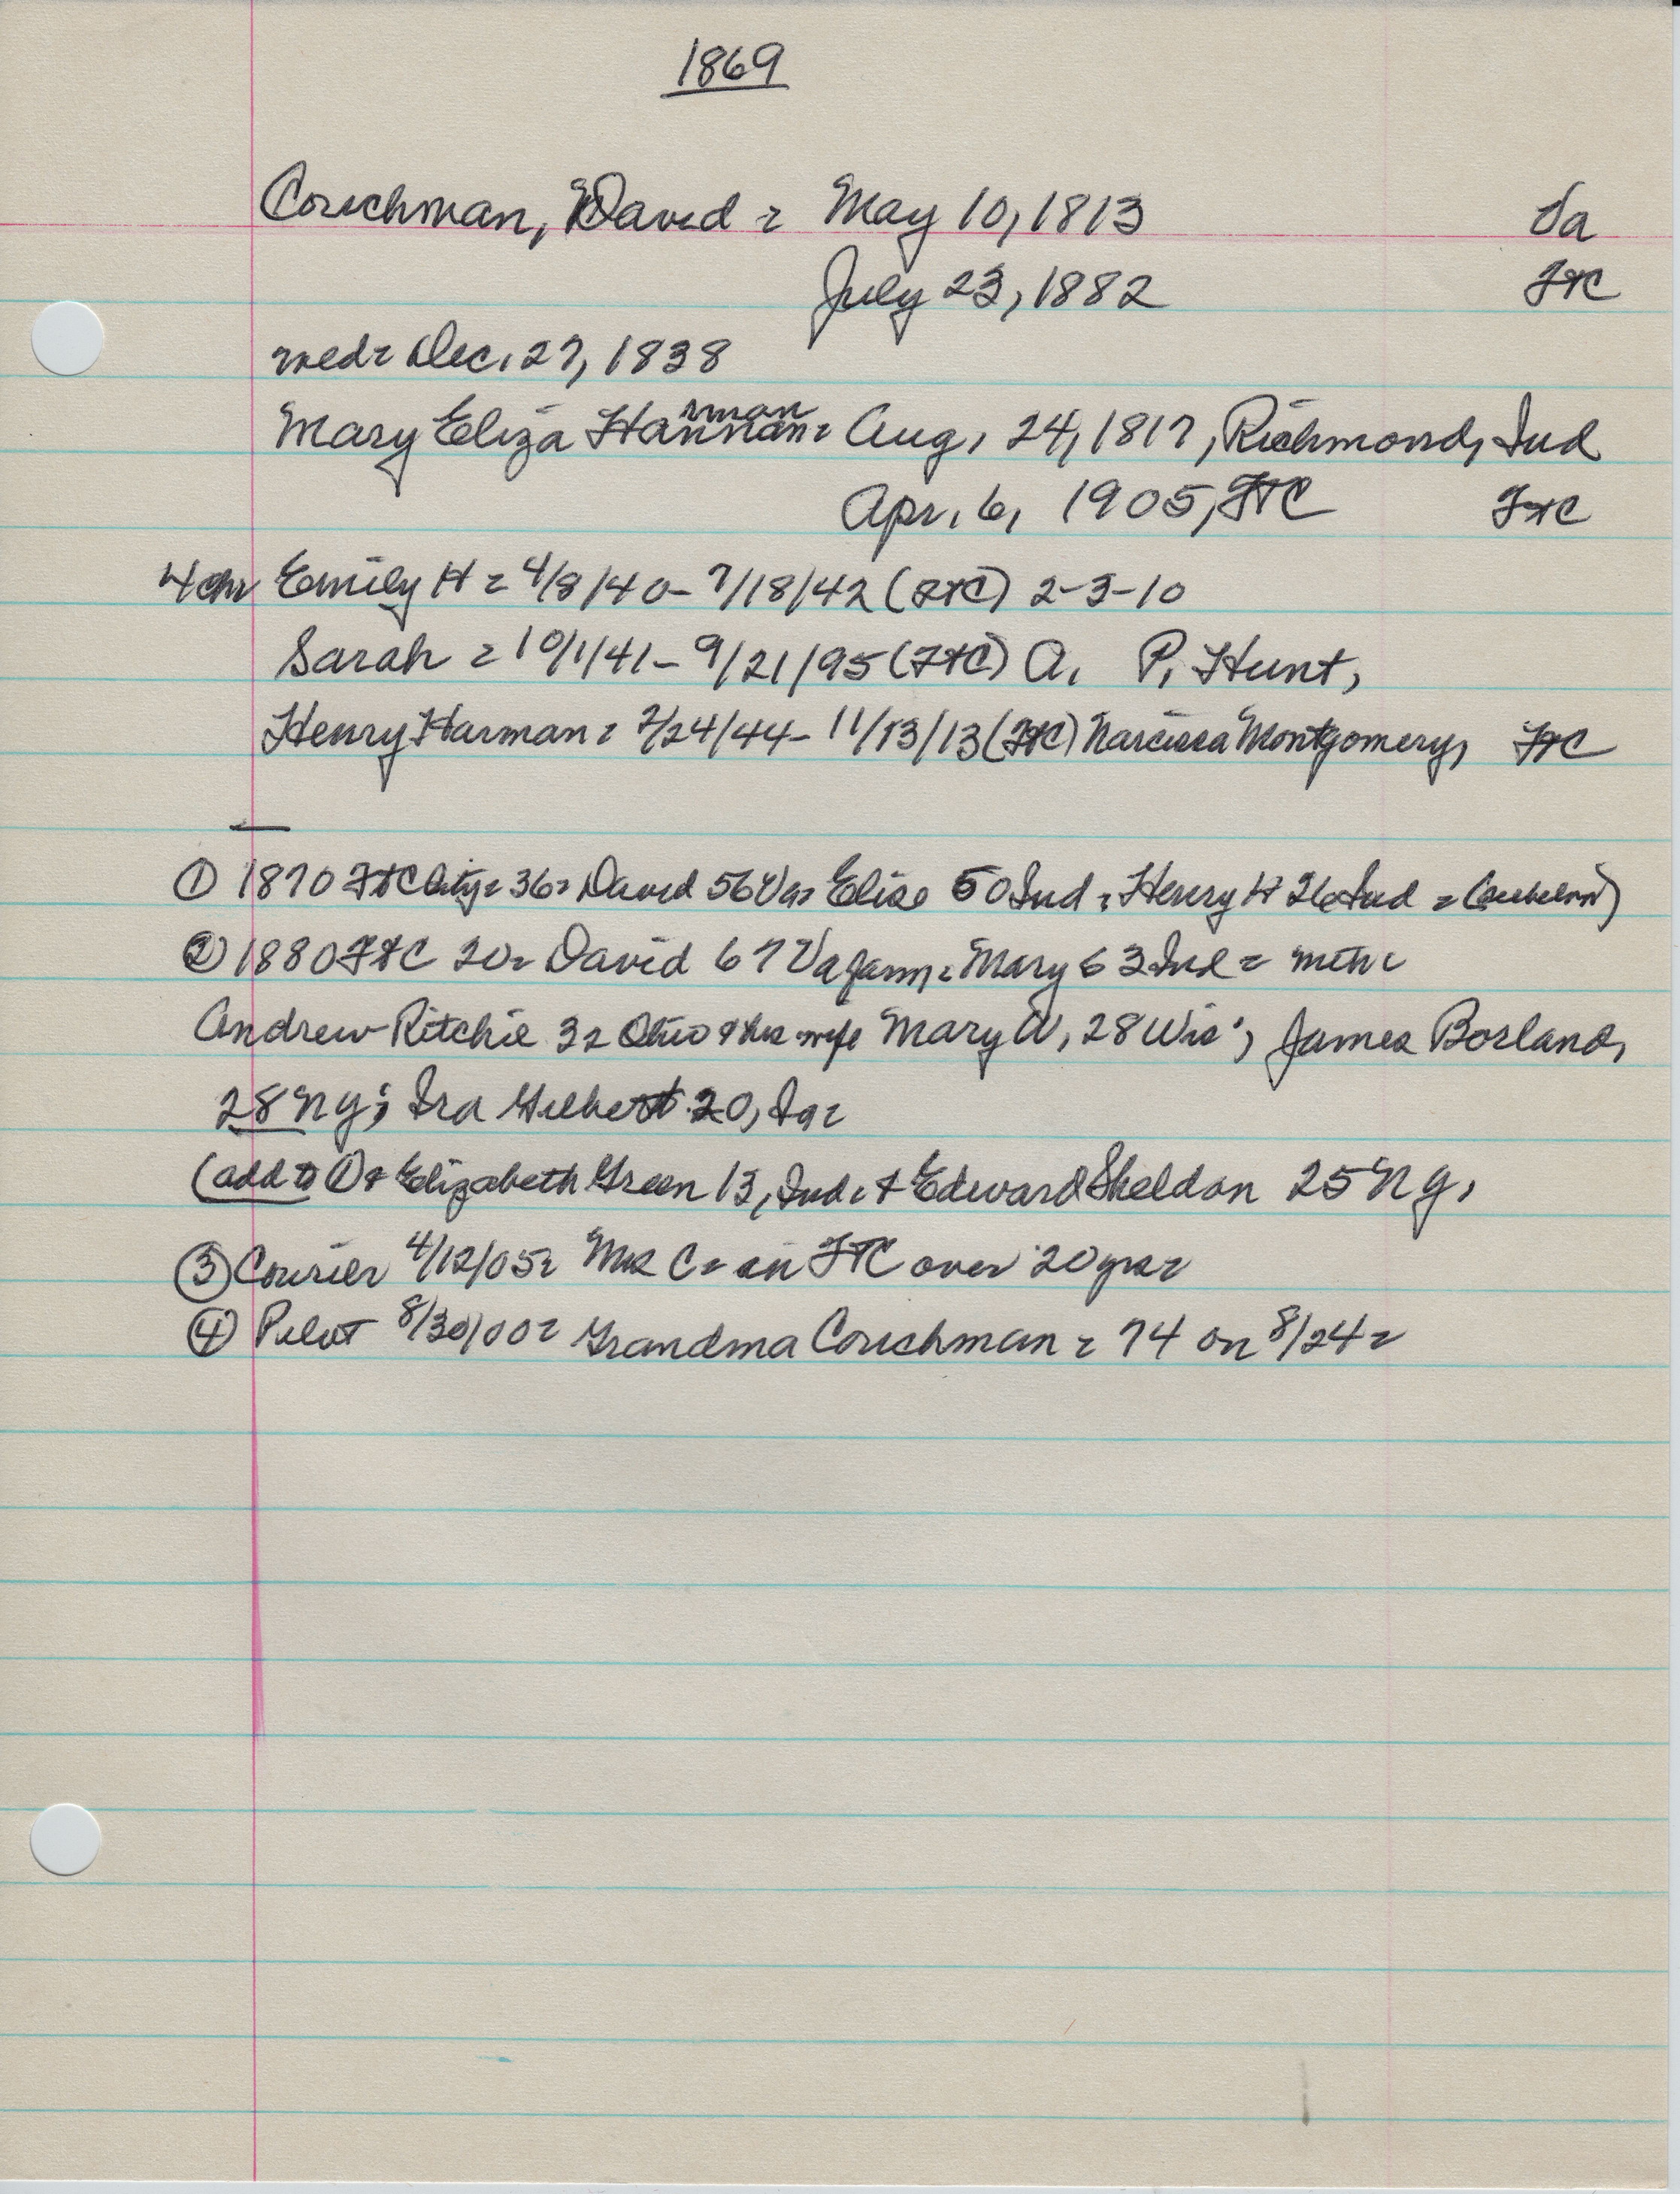 1869
Couchman, David = May 10, 1813
July 23, 1882 FtC
wed= Dec. 27, 1838
Mary Eliza Harman= Aug, 24, 1817, Richmond, Ind
Apr, 6, 1905, FtC FtC
4 chr Emily H = 4/8/40- 7/18/42 (FtC) 2-3-10
Sarah = 10/1/41- 9/21/95 (FtC) A. P. Hunt,
Henry Harman = 7/24/44- 11/13/13 (FtC) Narcissa Montgomery, FtC
① 1870 FtC City= 36= David 56 Va= Eliza 50 Ind = Henry H 26 Ind =
② 1880 FtC 20= David 67 Va farm= Mary 63 Ind =
Andrew Ritchie 32 Ohio & his wife Mary A, 28 Wis; James Borland,
28 NY; Ira Gilbert 20, Ia=
(add to ① & Elizabeth Green 13, Ind. & Edward Sheldon 25 NY,
③ Courier 4/12/05= Mrs C= in FtC over 20 yrs=
④ Pilot 8/30/00= Grandma Couchman = 74 on 8/24=